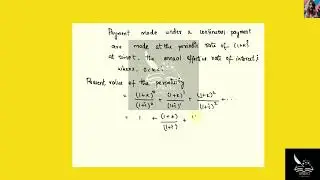 Payment made under a continuous payment
are made at the periodic rate of (1+k)ᵗ
at time t. the annual effective rate of interest i
where 0<k<i
Present value of the perpetuity
= (1+k)⁰/(1+i)⁰ + (1+k)¹/(1+i)¹ + (1+k)²/(1+i)² + ...
= 1 + (1+k)/(1+i) +